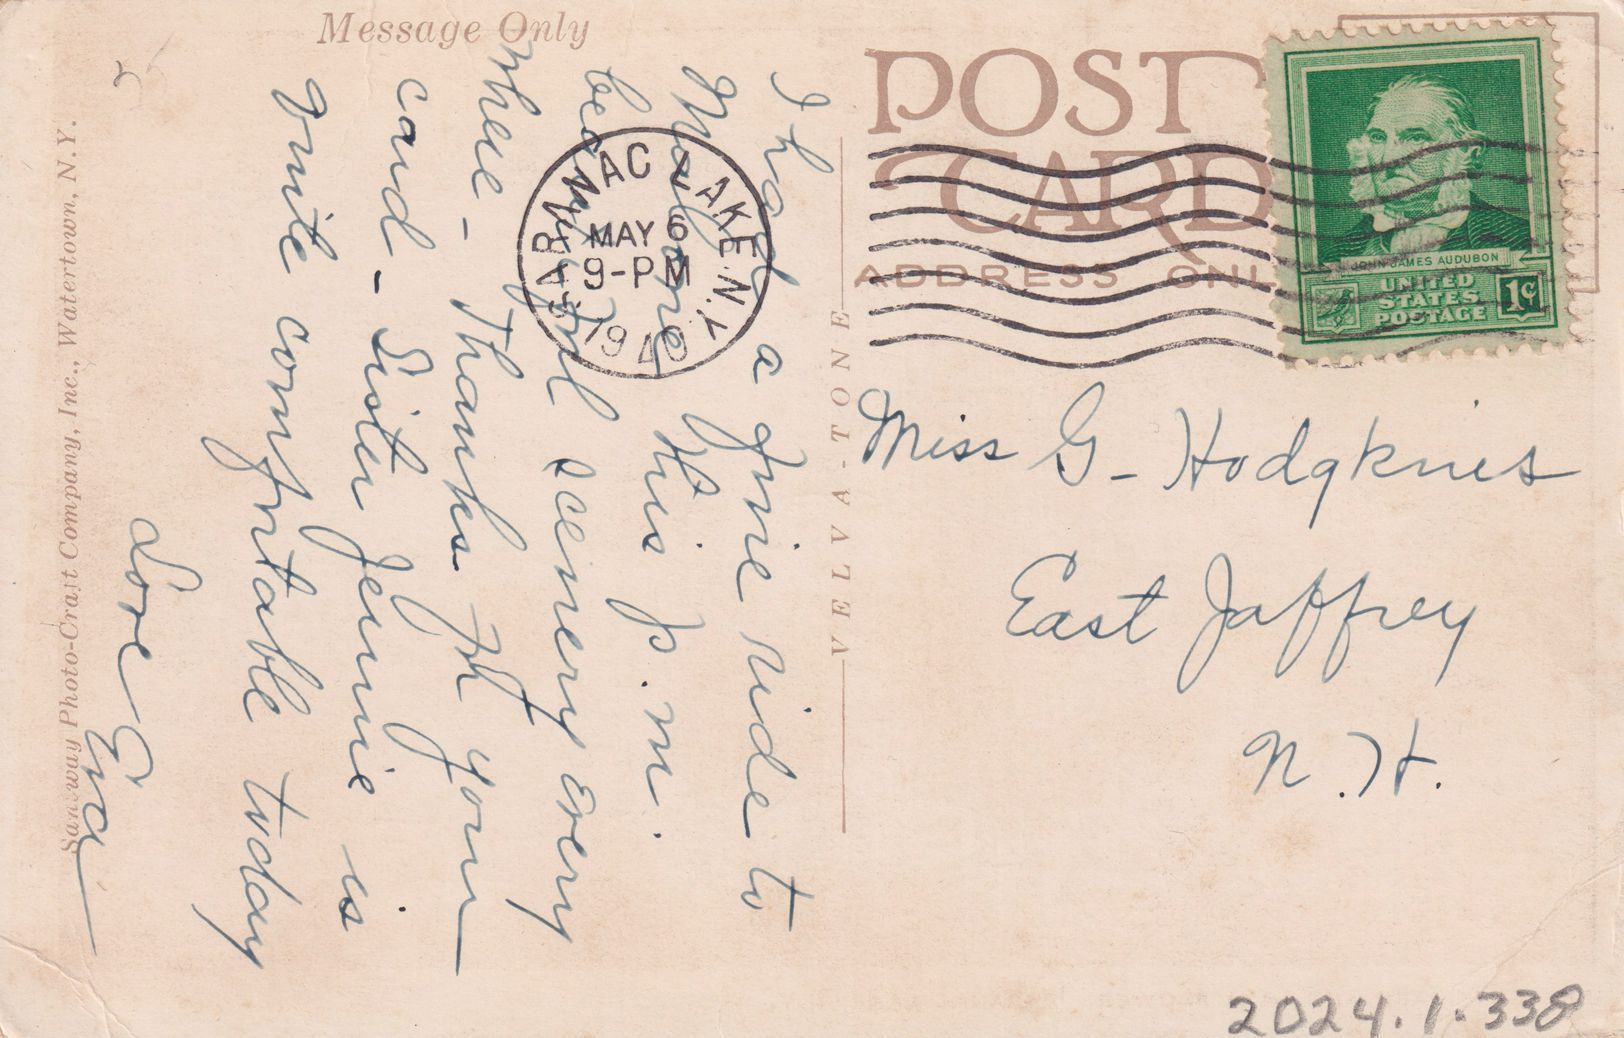 Message Only
I had a fine ride to
Malone this p.m.
beautiful scenery every
where - Thanks for your
card - Sister Jennie is
quite comfortable today
Love Eva
Santway Photo-Craft Company, Inc., Watertown, N.Y.
VELVA-TONE
POST
CARD
ADDRESS ONL
SARANAC LAKE, N.Y.
MAY 6
9-PM
1940
JOHN JAMES AUDUBON
UNITED
STATES
POSTAGE
1¢
Miss G - Hodgkins
East Jaffrey
N.H.
2024.1.338